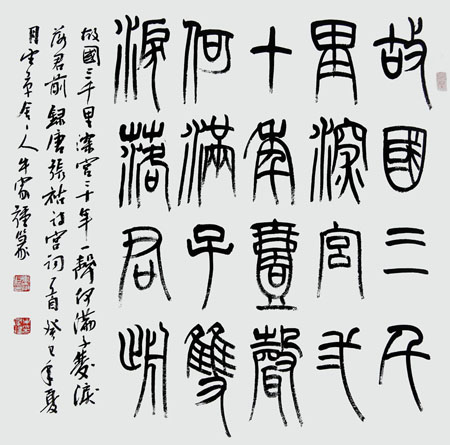 故國三千
里深宮弍
十年壹聲
何滿子雙
淚落君前
故國三千里深宮二十年一聲何滿子雙淚
落君前 錄唐張祜詩宮詞首 癸巳年夏
月 人牛家 篆